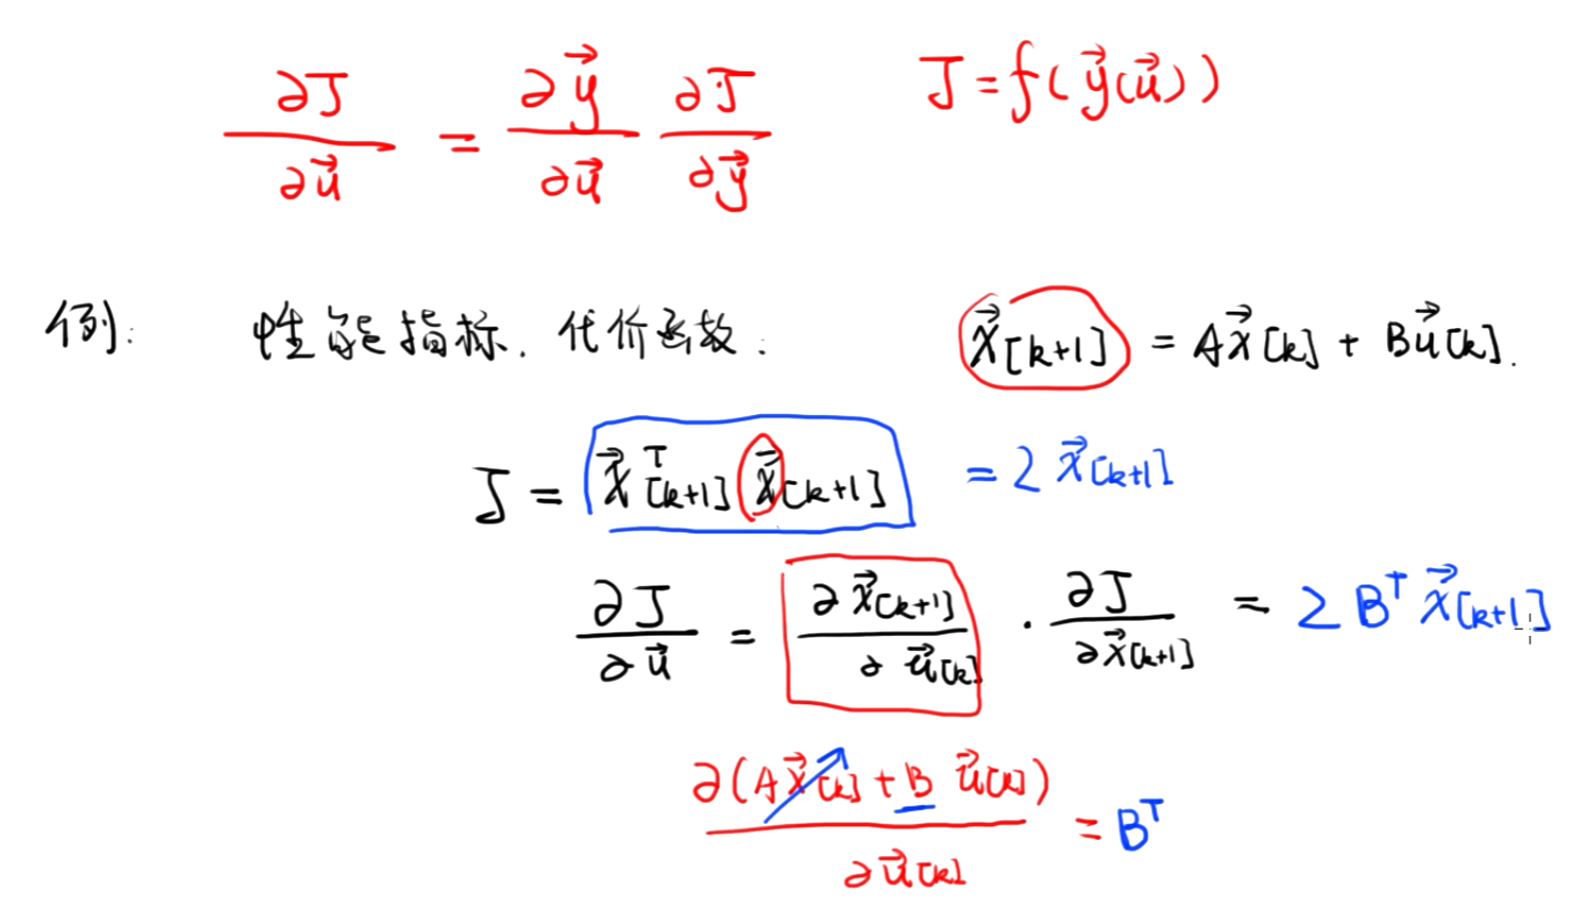 ∂J/∂u⃗ = ∂y⃗/∂u⃗ ∂J/∂y⃗ J = f(y⃗(u⃗))
例: 性能指标. 代价函数: x⃗[k+1] = Ax⃗[k] + Bu⃗[k].
J = x⃗ᵀ[k+1] x⃗[k+1] = 2 x⃗[k+1]
∂J/∂u⃗ = ∂x⃗[k+1]/∂u⃗[k] · ∂J/∂x⃗[k+1] = 2 Bᵀ x⃗[k+1]
∂(Ax⃗[k] + B u⃗[k])/∂u⃗[k] = Bᵀ